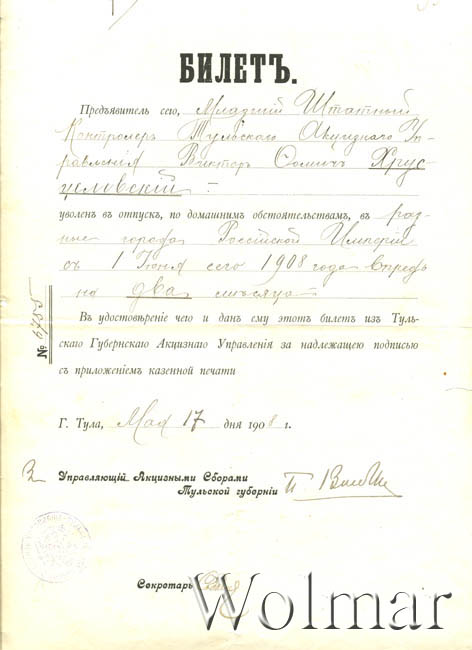 БИЛЕТЪ.
Предъявитель сего, Младшій Штатный
Контролеръ Тульскаго Акцизнаго Уп-
равленія Викторъ Хрус-
целовскій
уволенъ въ отпускъ, по домашнимъ обстоятельствамъ, въ раз-
ные города Россійской Имперіи
съ 1 Іюня сего 1908 года впредь
на два мѣсяца
Въ удостовѣреніе чего и данъ ему этотъ билетъ изъ Туль-
скаго Губернскаго Акцизнаго Управленія за надлежащею подписью
съ приложеніемъ казенной печати
№ 6785
Г. Тула, Мая 17 дня 1908 г.
Управляющій Акцизными Сборами
Тульской губерніи
Секретарь
Wolmar